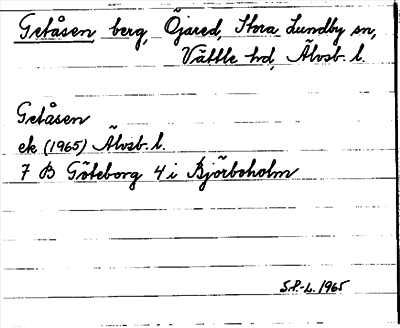 Getåsen, berg, Öjared, Stora Lundby sn,
Vättle hd, Älvsb. l.
Getåsen
ek (1965) Älvsb. l.
7 B Göteborg 4 i Björboholm
S.P.-L. 1965